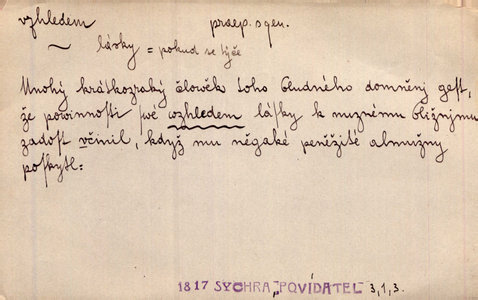 vzhledem praep. s gen.
~ lásky = pokud se týče
Mnohý krátkozraký člověk toho bludného domněnj gest,
že powinnosti swé wzhledem láſky k nuznému bližnjmu
zadost včinil, když mu něgaké peněžité almužny
poſkytl:
1817 SYCHRA „POVÍDATEL" 3,1,3.